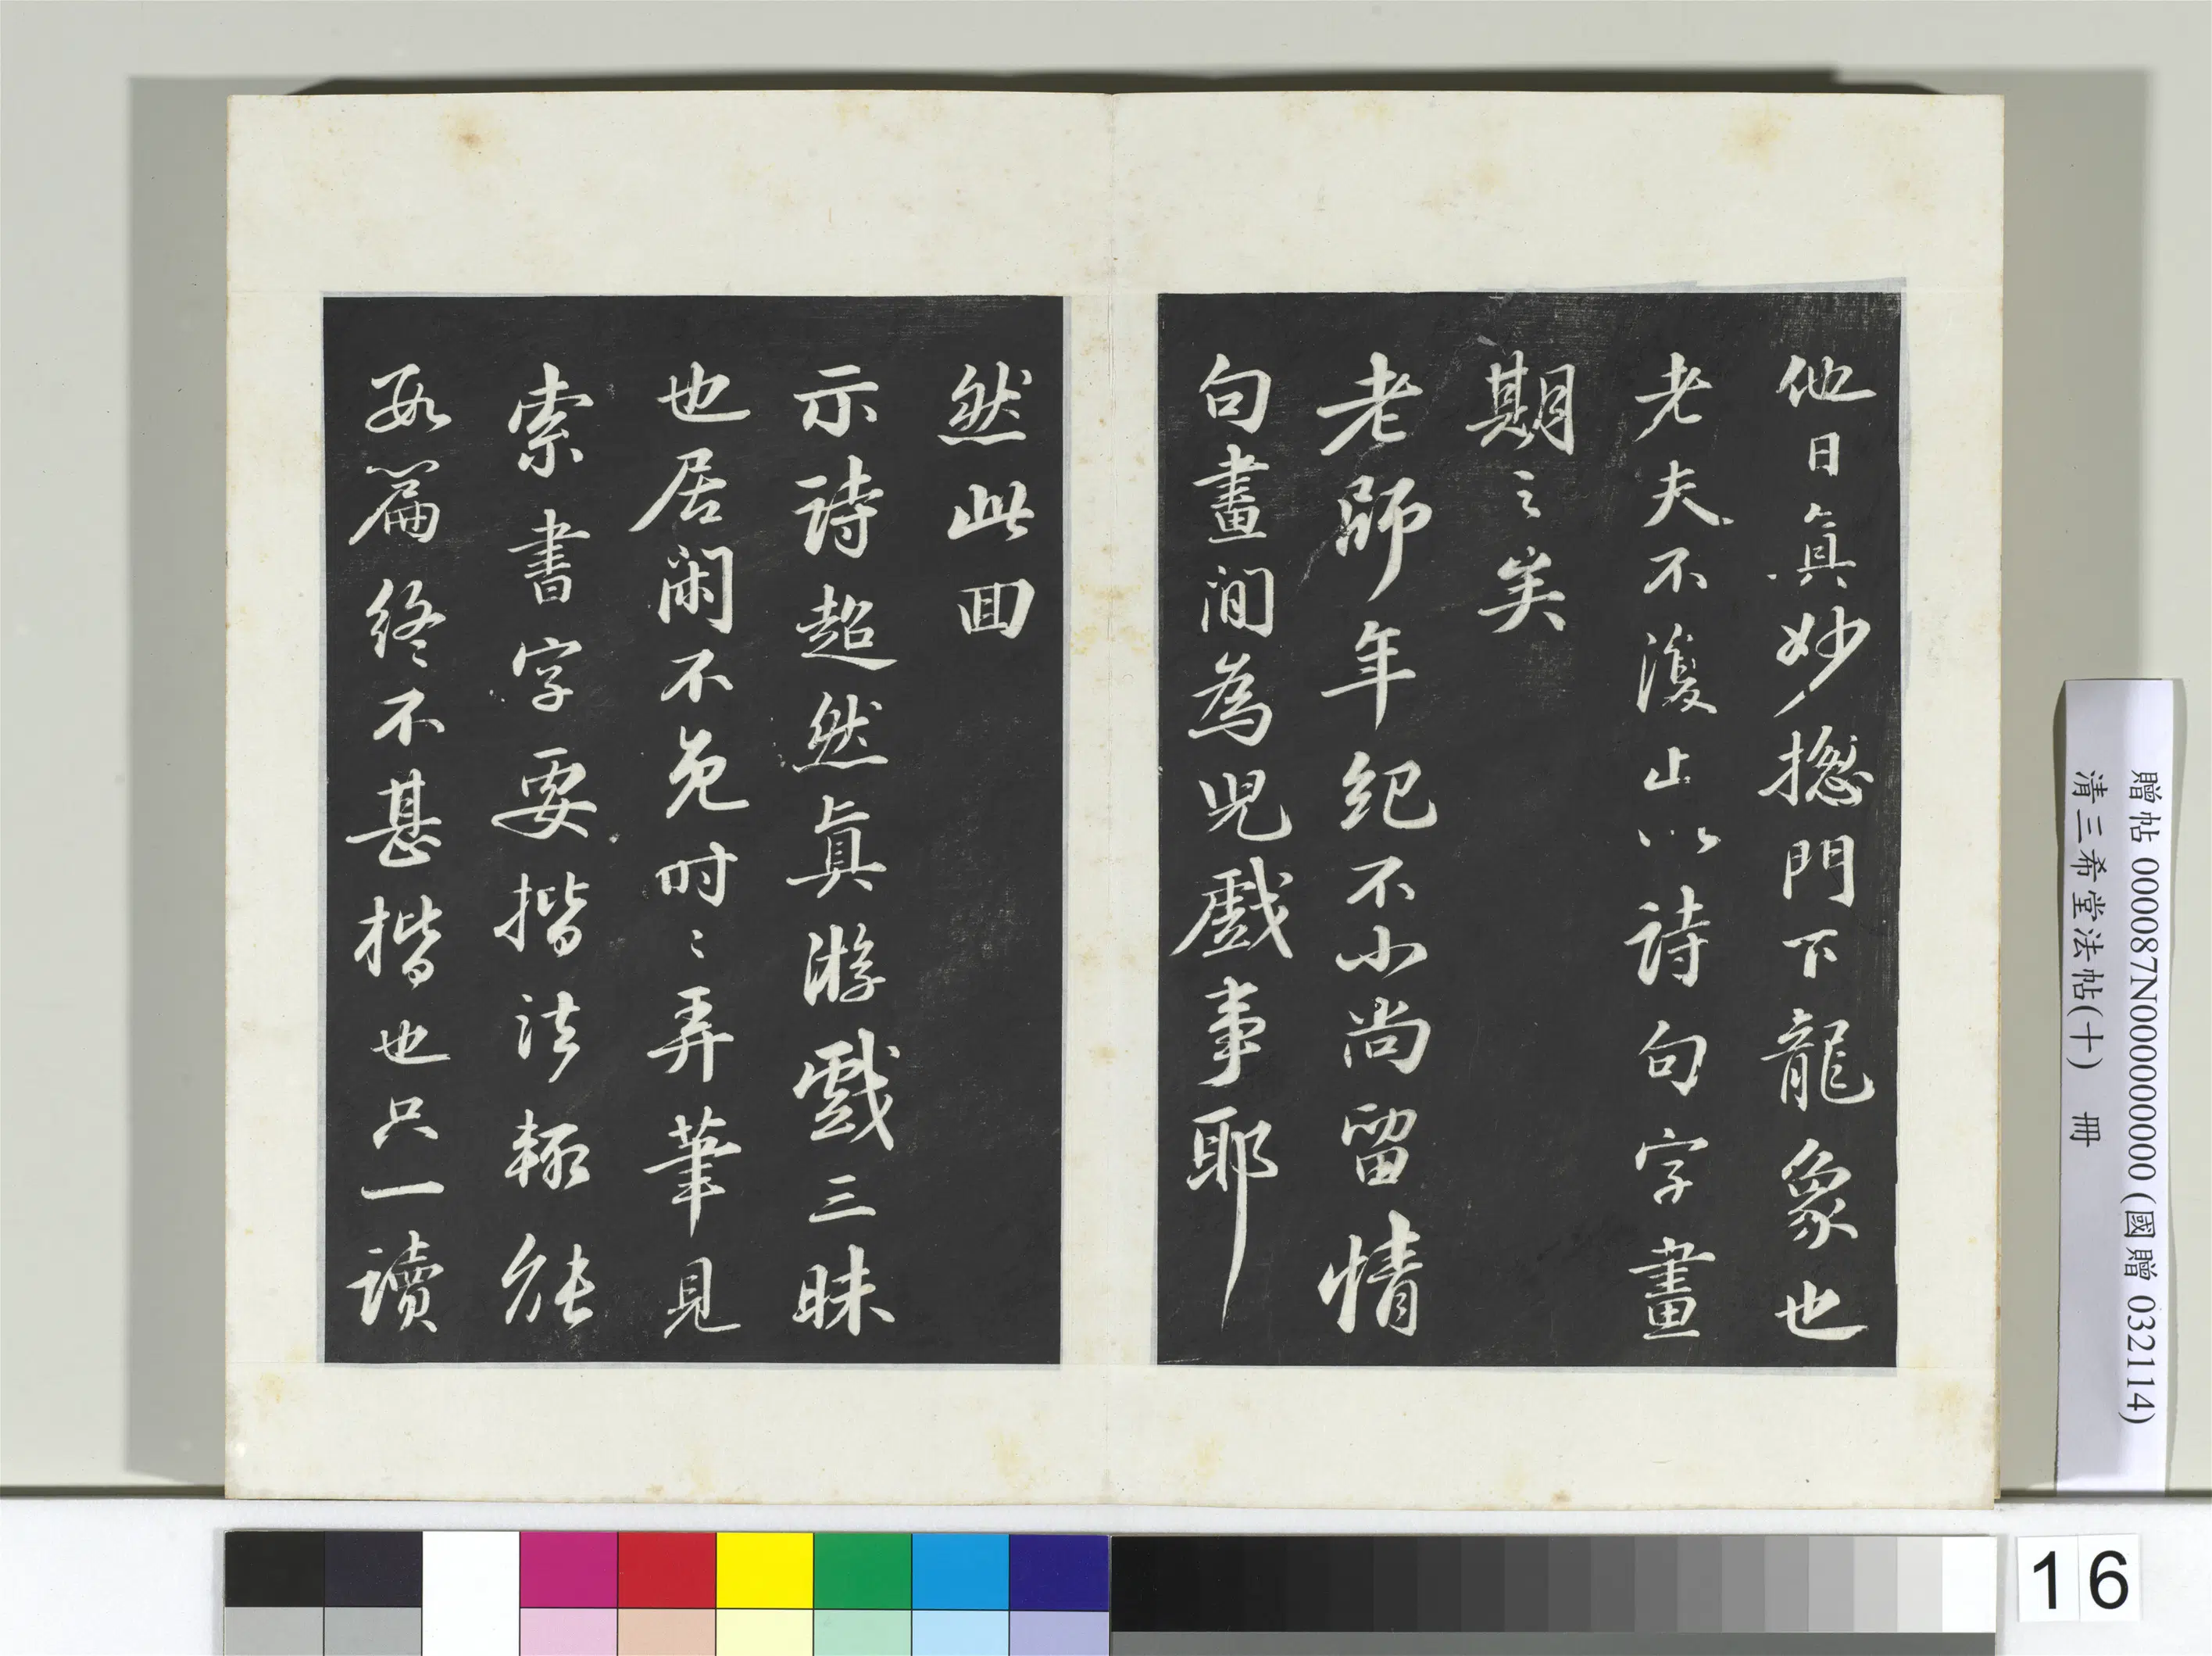 他日真妙揔門下龍象也
老夫不復止以詩句字畫
期之矣
老師年紀不小尚留情
句畫間為兒戲事耶
然此回
示詩超然真游戲三昧
也居閑不免時〻弄筆見
索書字要楷法輒能
數篇終不甚楷也只一讀
贈帖 000087N000000000 (國贈 032114)
清三希堂法帖(十) 冊
16